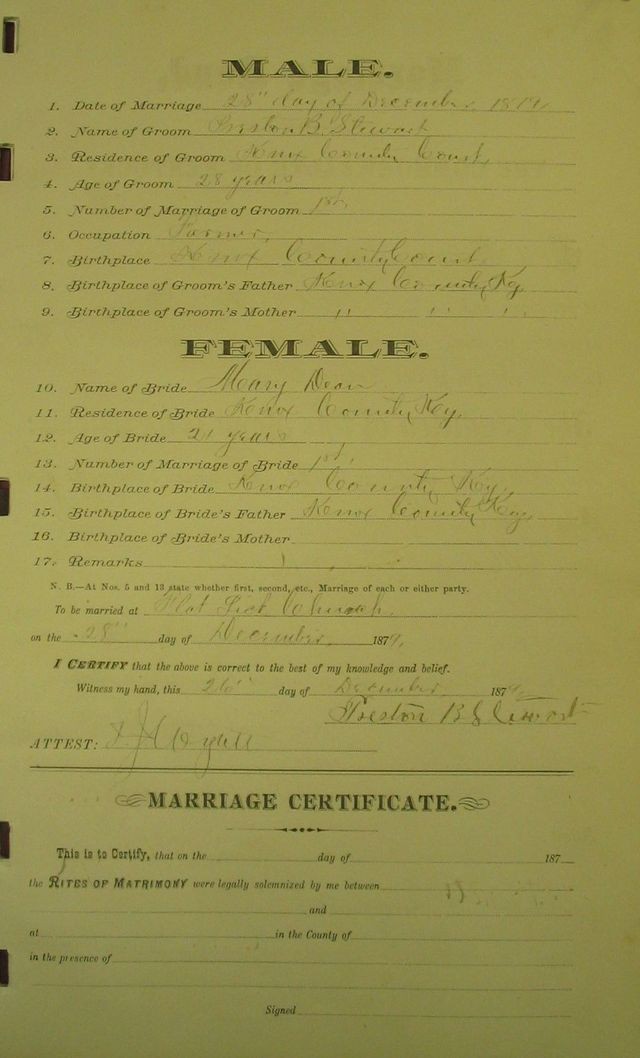 MALE.
1. Date of Marriage 28" day of December 1879
2. Name of Groom Preston B. Stewart
3. Residence of Groom Knox County Court
4. Age of Groom 28 years
5. Number of Marriage of Groom 1st
6. Occupation Farmer,
7. Birthplace Knox County Court
8. Birthplace of Groom's Father Knox County Ky
9. Birthplace of Groom's Mother " " "
FEMALE.
10. Name of Bride Mary Dean
11. Residence of Bride Knox County Ky,
12. Age of Bride 21 years
13. Number of Marriage of Bride 1st
14. Birthplace of Bride Knox County Ky,
15. Birthplace of Bride's Father Knox County Ky,
16. Birthplace of Bride's Mother
17. Remarks
N. B.—At Nos. 5 and 13 state whether first, second, etc., Marriage of each or either party.
To be married at Flat Lick Church
on the 28" day of December 1879,
I CERTIFY that the above is correct to the best of my knowledge and belief.
Witness my hand, this 26" day of December 1879
Preston B Stewart
ATTEST:
MARRIAGE CERTIFICATE.
This is to Certify, that on the day of 187
the RITES OF MATRIMONY were legally solemnized by me between
and
at in the County of
in the presence of
Signed